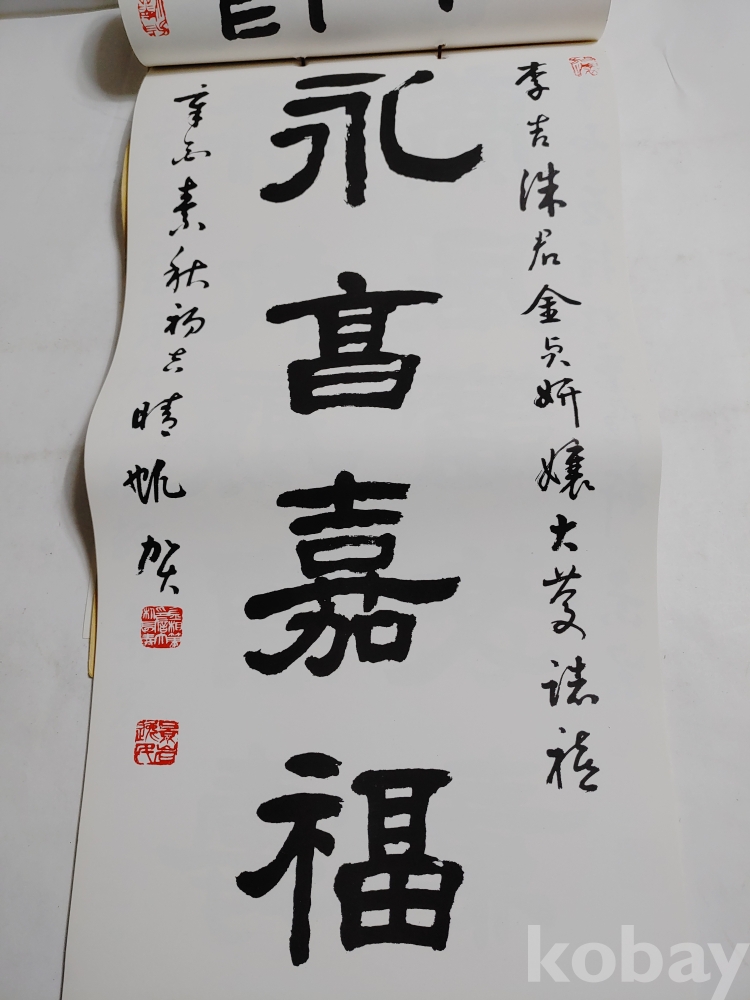 李吉洙君金貞妍孃大慶誌禧
永髙嘉福
辛酉素秋初吉晴帆賀
kobay